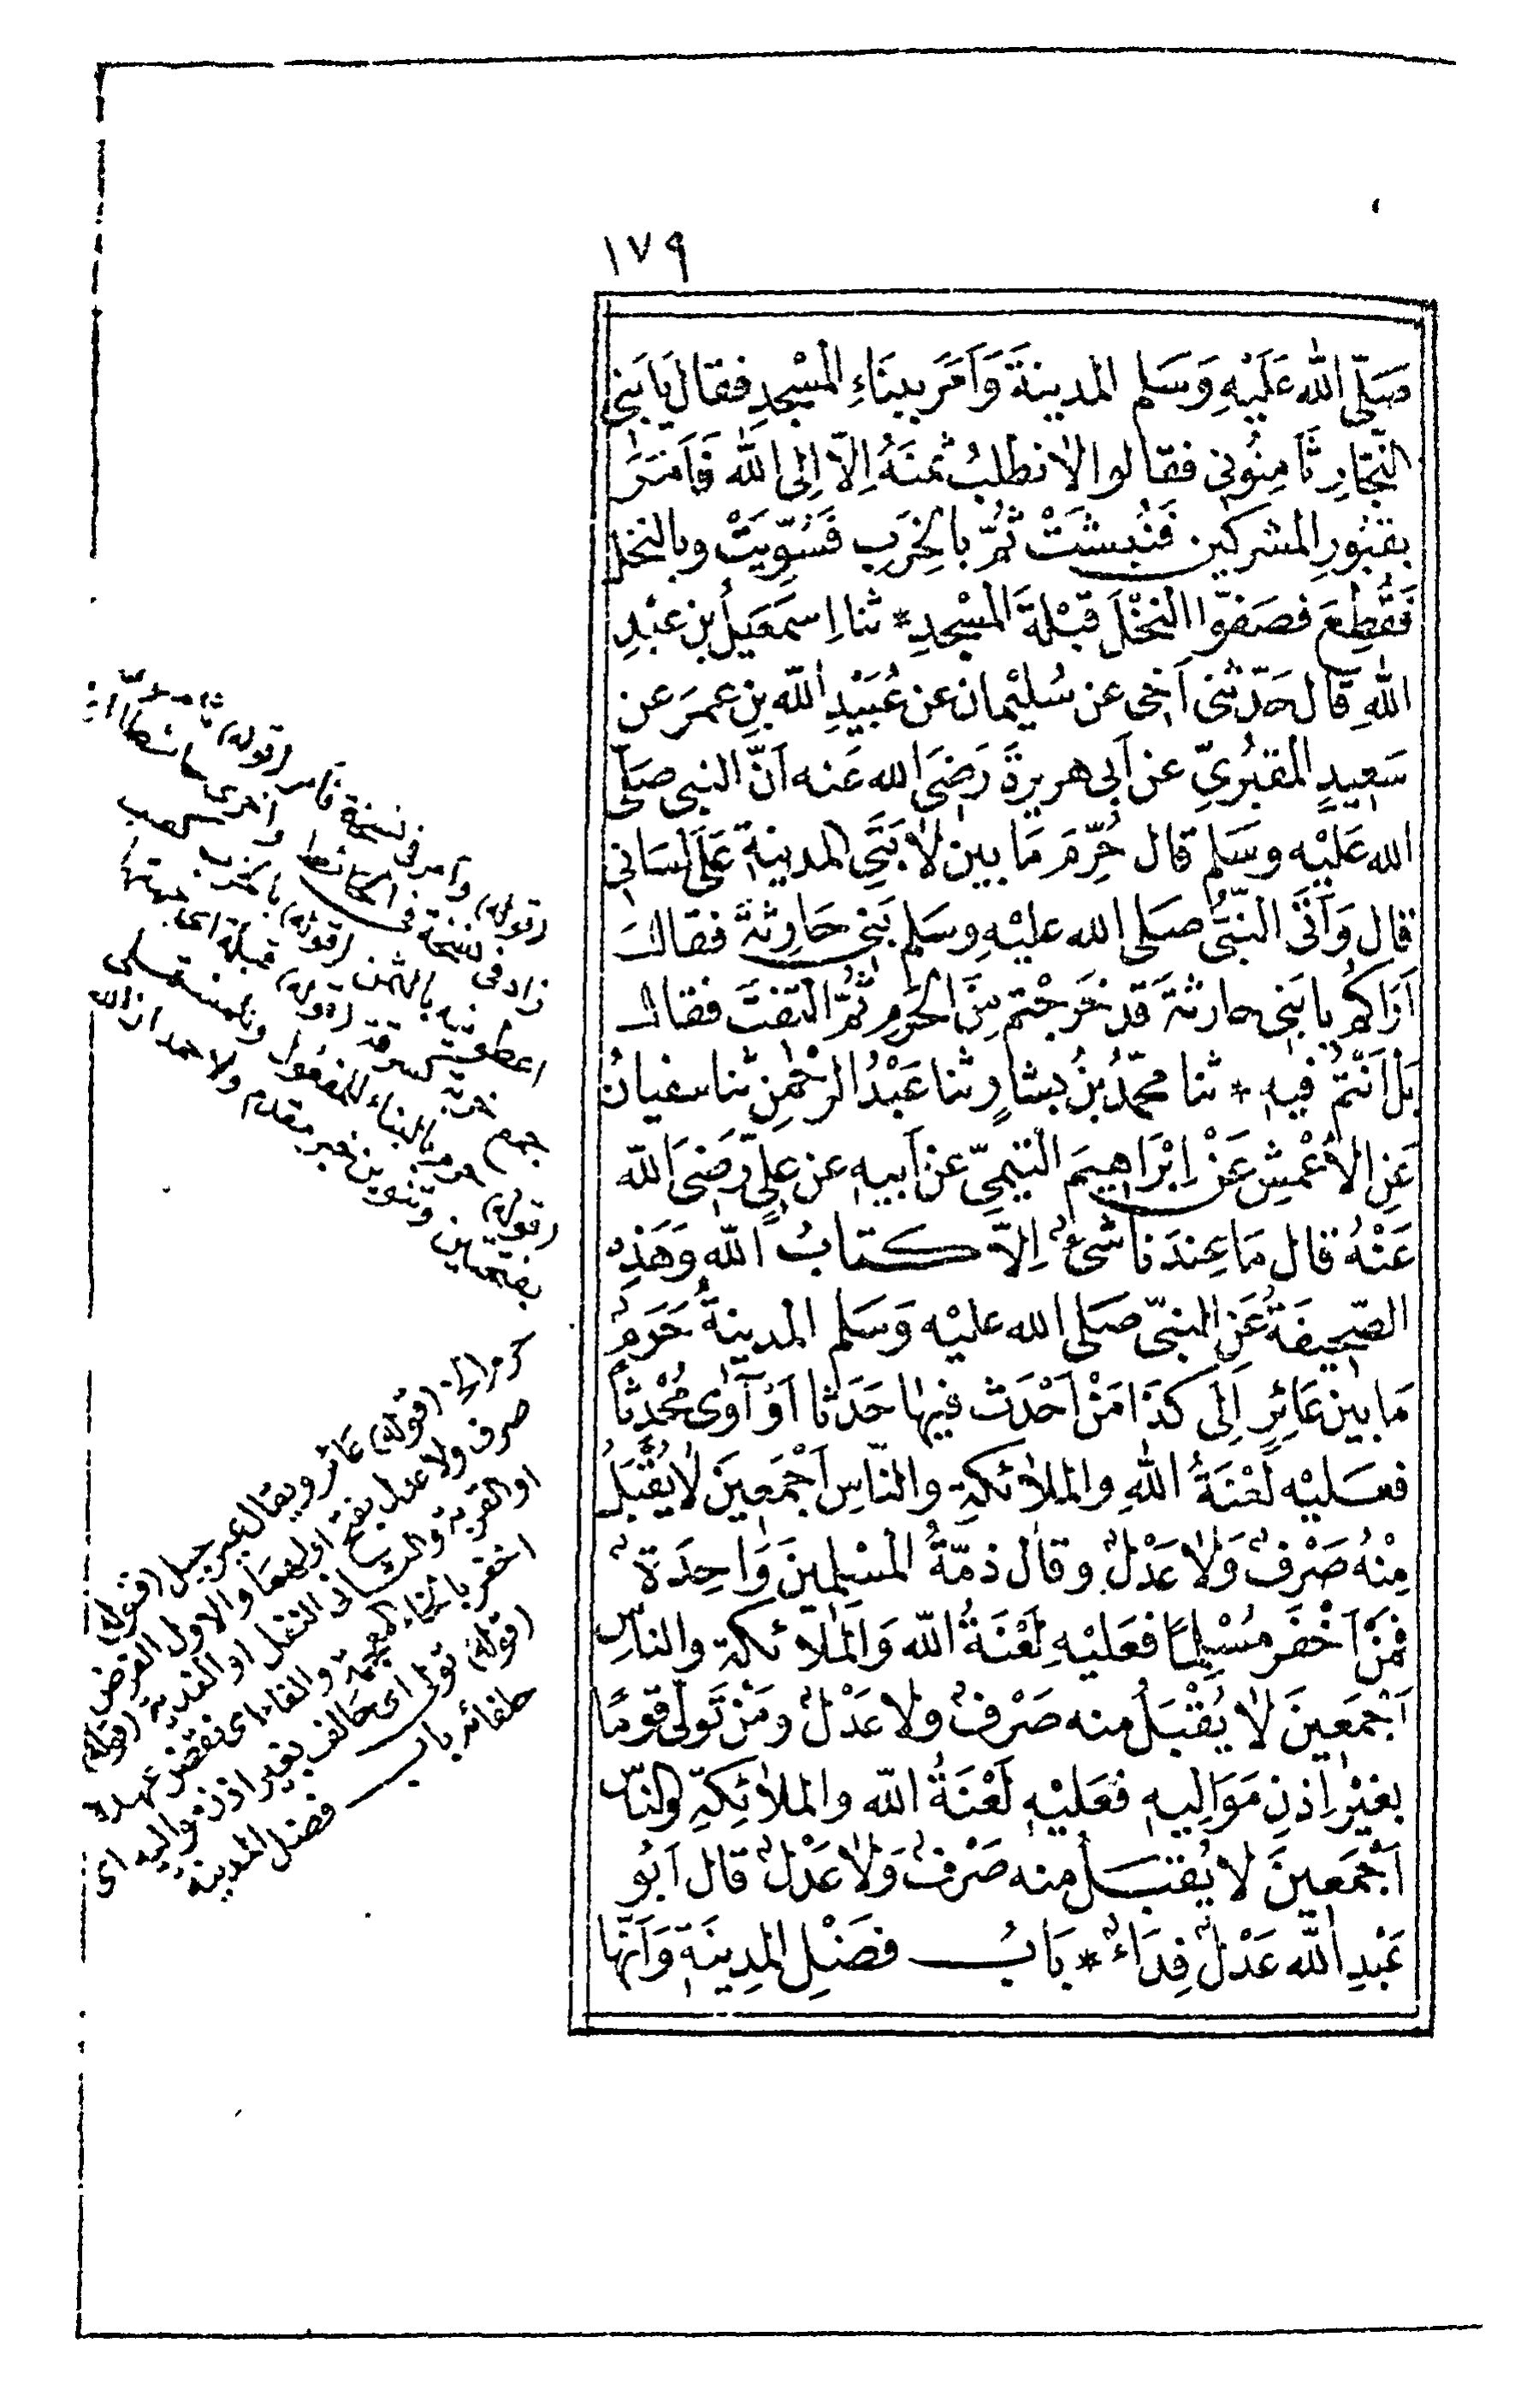 ١٧٩
صَلّى الله عَلَيْهِ وَسَلم المدينةَ وَاَمَرَ ببِنَاءِ المسْجِدِ فقال يَا بَنى
النّجّارِ ثَامِنُونى فقالوا لا نطلبُ ثمنَهُ اِلاّ اِلى الله فَاَمَرَ
بقبُورِ المشركين فَنُبِشَتْ ثُمّ بالخِرَبِ فَسُوِّيَتْ وبالنخل
فَقُطِعَ فصَفّوا النخْلَ قبْلةَ المسْجدِ * ثنا اِسمَعيلُ بن عبْدِ
اللهِ قال حَدّثنى اَخى عن سُليْمان عن عُبَيْدِ الله بنِ عمرَ عن
سَعِيدٍ المقبُرىِّ عن اَبى هريرةَ رَضىَ الله عَنه اَنَّ النبى صَلّى
الله عَليْه وسَلم قال حُرِّمَ مَا بين لاَبَتَىِ المدينةِ عَلَى لسَانى
قال وَاَتَى النّبىُّ صلى الله عليْهِ وسَلم بَنى حَارِثةَ فقال
اَرَاكم يا بَنى حارثةَ قد خَرَجْتم مِنَ الحَرَمِ ثُمّ التفتَ فقال
بَل اَنْتُم فيهِ * ثنا محمّدُ بنُ بشارٍ ثنا عَبْدُ الرحْمٰنِ ثنا سفيانُ
عَنِ الاَعْمشِ عَنْ اِبْرَاهِيمَ التيمىِّ عن اَبيهِ عن علىٍّ رَضىَ الله
عَنْهُ قال مَا عِندَنا شىءٌ اِلاّ كتابُ الله وَهَذِهِ
الصّحِيفَةُ عَنِ النبىّ صَلى الله عليْه وَسَلم المدينةُ حَرَمٌ
مَا بين عَائِرٍ اِلَى كذَا مَنْ اَحْدَث فيها حَدَثا اَوْ آوَى مُحْدِثًا
فعَليْه لَعْنَةُ اللهِ والملائكةِ والنّاسِ اَجْمَعِينَ لا يُقْبَلُ
مِنْهُ صَرْفٌ وَلا عَدْلٌ وقال ذمّةُ المسْلِمِينَ وَاحِدَةٌ
فمَنْ اَخْفَرَ مُسْلِمًا فعَليْهِ لَعْنَةُ الله وَالملائكةِ والناسِ
اَجْمَعِينَ لا يُقْبَلُ منه صَرْفٌ ولا عَدْلٌ ومَنْ تَولّى قومًا
بغيْرِ اِذنِ مَوَالِيهِ فعَليْهِ لَعْنَةُ الله والملائِكةِ والناس
اَجْمَعينَ لا يُقبَلُ منه صَرْفٌ وَلا عَدْلٌ قال اَبُو
عَبْدِ الله عَدْلٌ فِدَاءٌ * بَابُ فضَلِ المدِينَةِ وَاَنَّها
(قوله) وأمر فى نسخة فأمر (قوله)
زاد فى نسخة فى الحائط و اخرى
اعطونيه بالثمن (قوله) بالخرب
جمع خربة (قوله) قبلة اى جهتها
(قوله) حرم بالبناء للمفعول
بفتحتين وتنوين خبر مقدم ولاحمد ان الله
(قوله) عائر ويقال عير جبل (قوله)
صرف ولا عدل بفتح اولهما والاول الفرض
او التوبة والثانى النفل او الفدية (قوله)
اخفر بالخاء المعجمة والفاء اى نقض عهده
(قوله) تولى اى حالف بغير اذن مواليه اى
حلفائه باب فضل المدينة